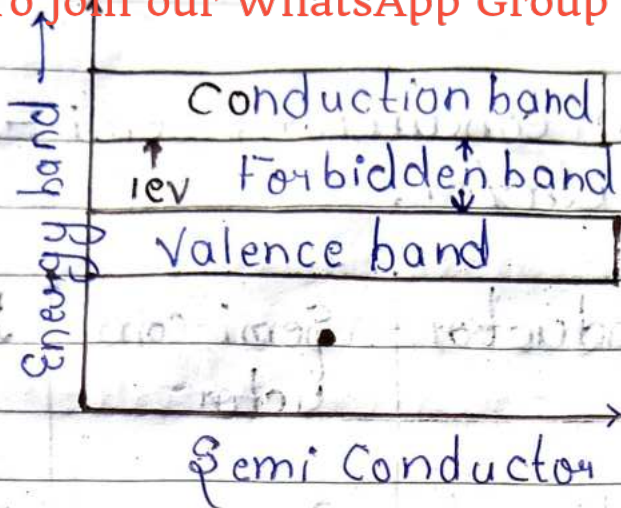 To join our WhatsApp Group
Energy band
Conduction band
1ev Forbidden band
Valence band
Semi Conductor